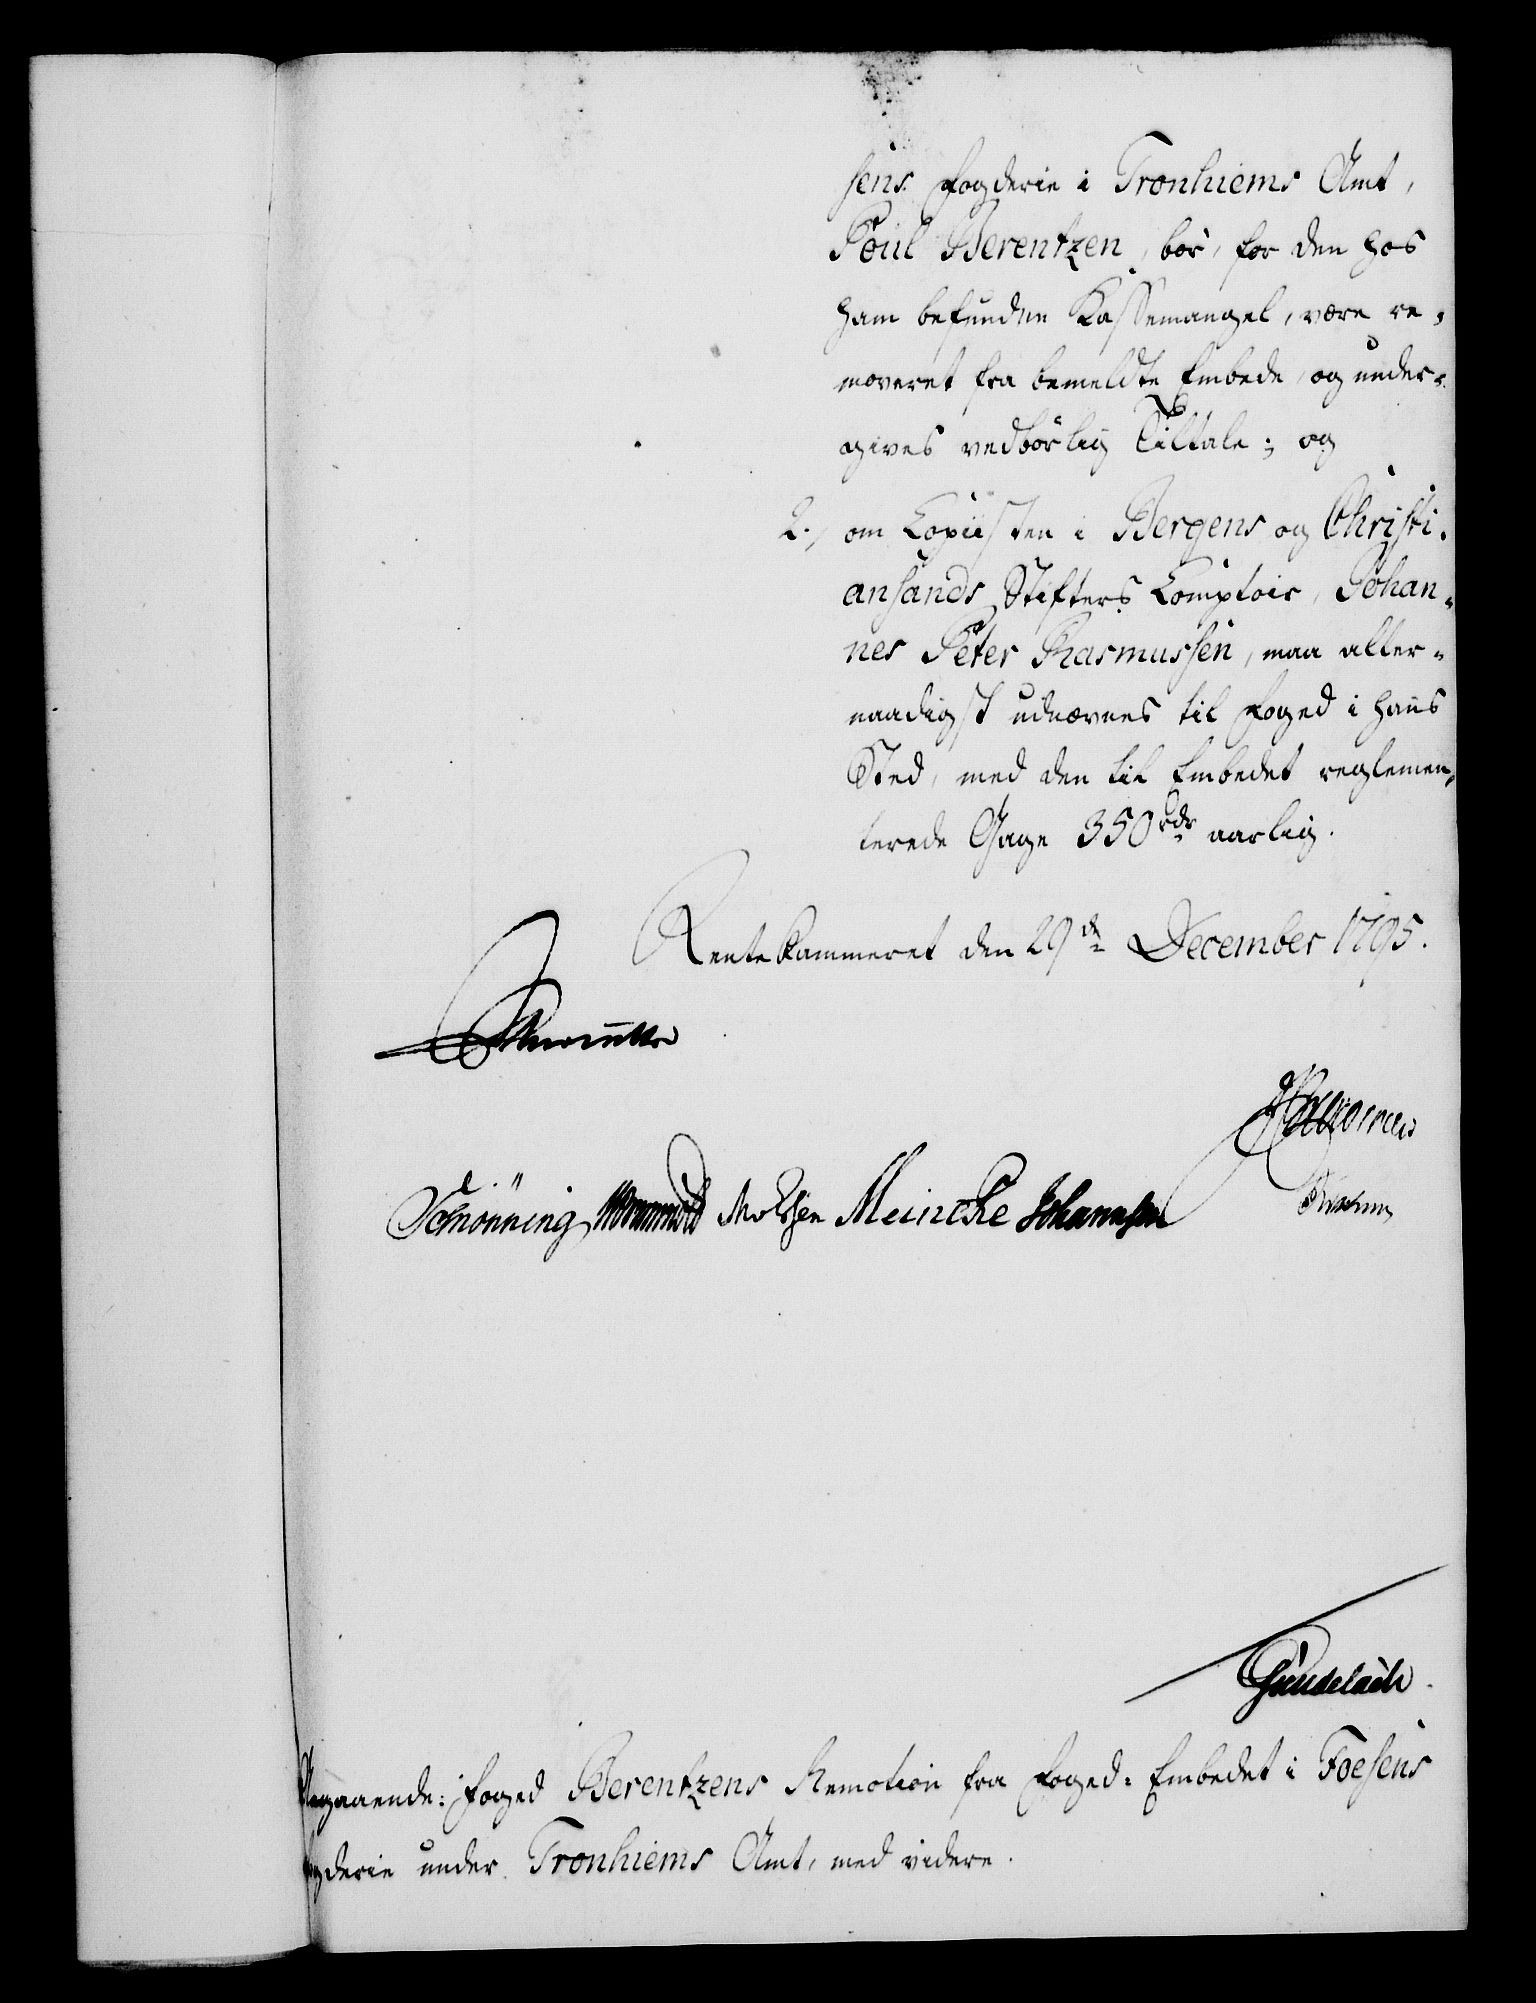 sens Fogderie i Tronhiems Amt,
Poul Berentzen, bør, for den hos
ham befundne Kassemangel, være re-
moveret fra bemeldte Embede, og under-
gives vedbørlig Tiltale; og
2., om Copiisten i Bergens og Christi-
ansands Stifters Comptoir, Johan-
nes Peter Rasmussen, maa aller-
naadigst udnævnes til Foged i hans
Sted, med den til Embedet reglemen-
terede Gage 350 rdr aarlig.
Rentekammeret den 29de December 1795.
Schiønning Wormskiold Moldsen Meincke Johannsen
Gundelach.
Angaaende: Foged Berentzens Remotion fra Foged-Embedet i Foesens
Fogderie under Tronhiems Amt, med videre.